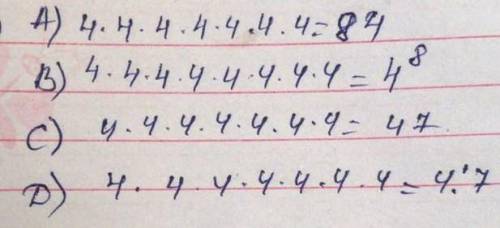 A) 4.4.4.4.4.4.4=84
B) 4.4.4.4.4.4.4.4=4⁸
C) 4.4.4.4.4.4.4=47
D) 4.4.4.4.4.4.4=4.'7